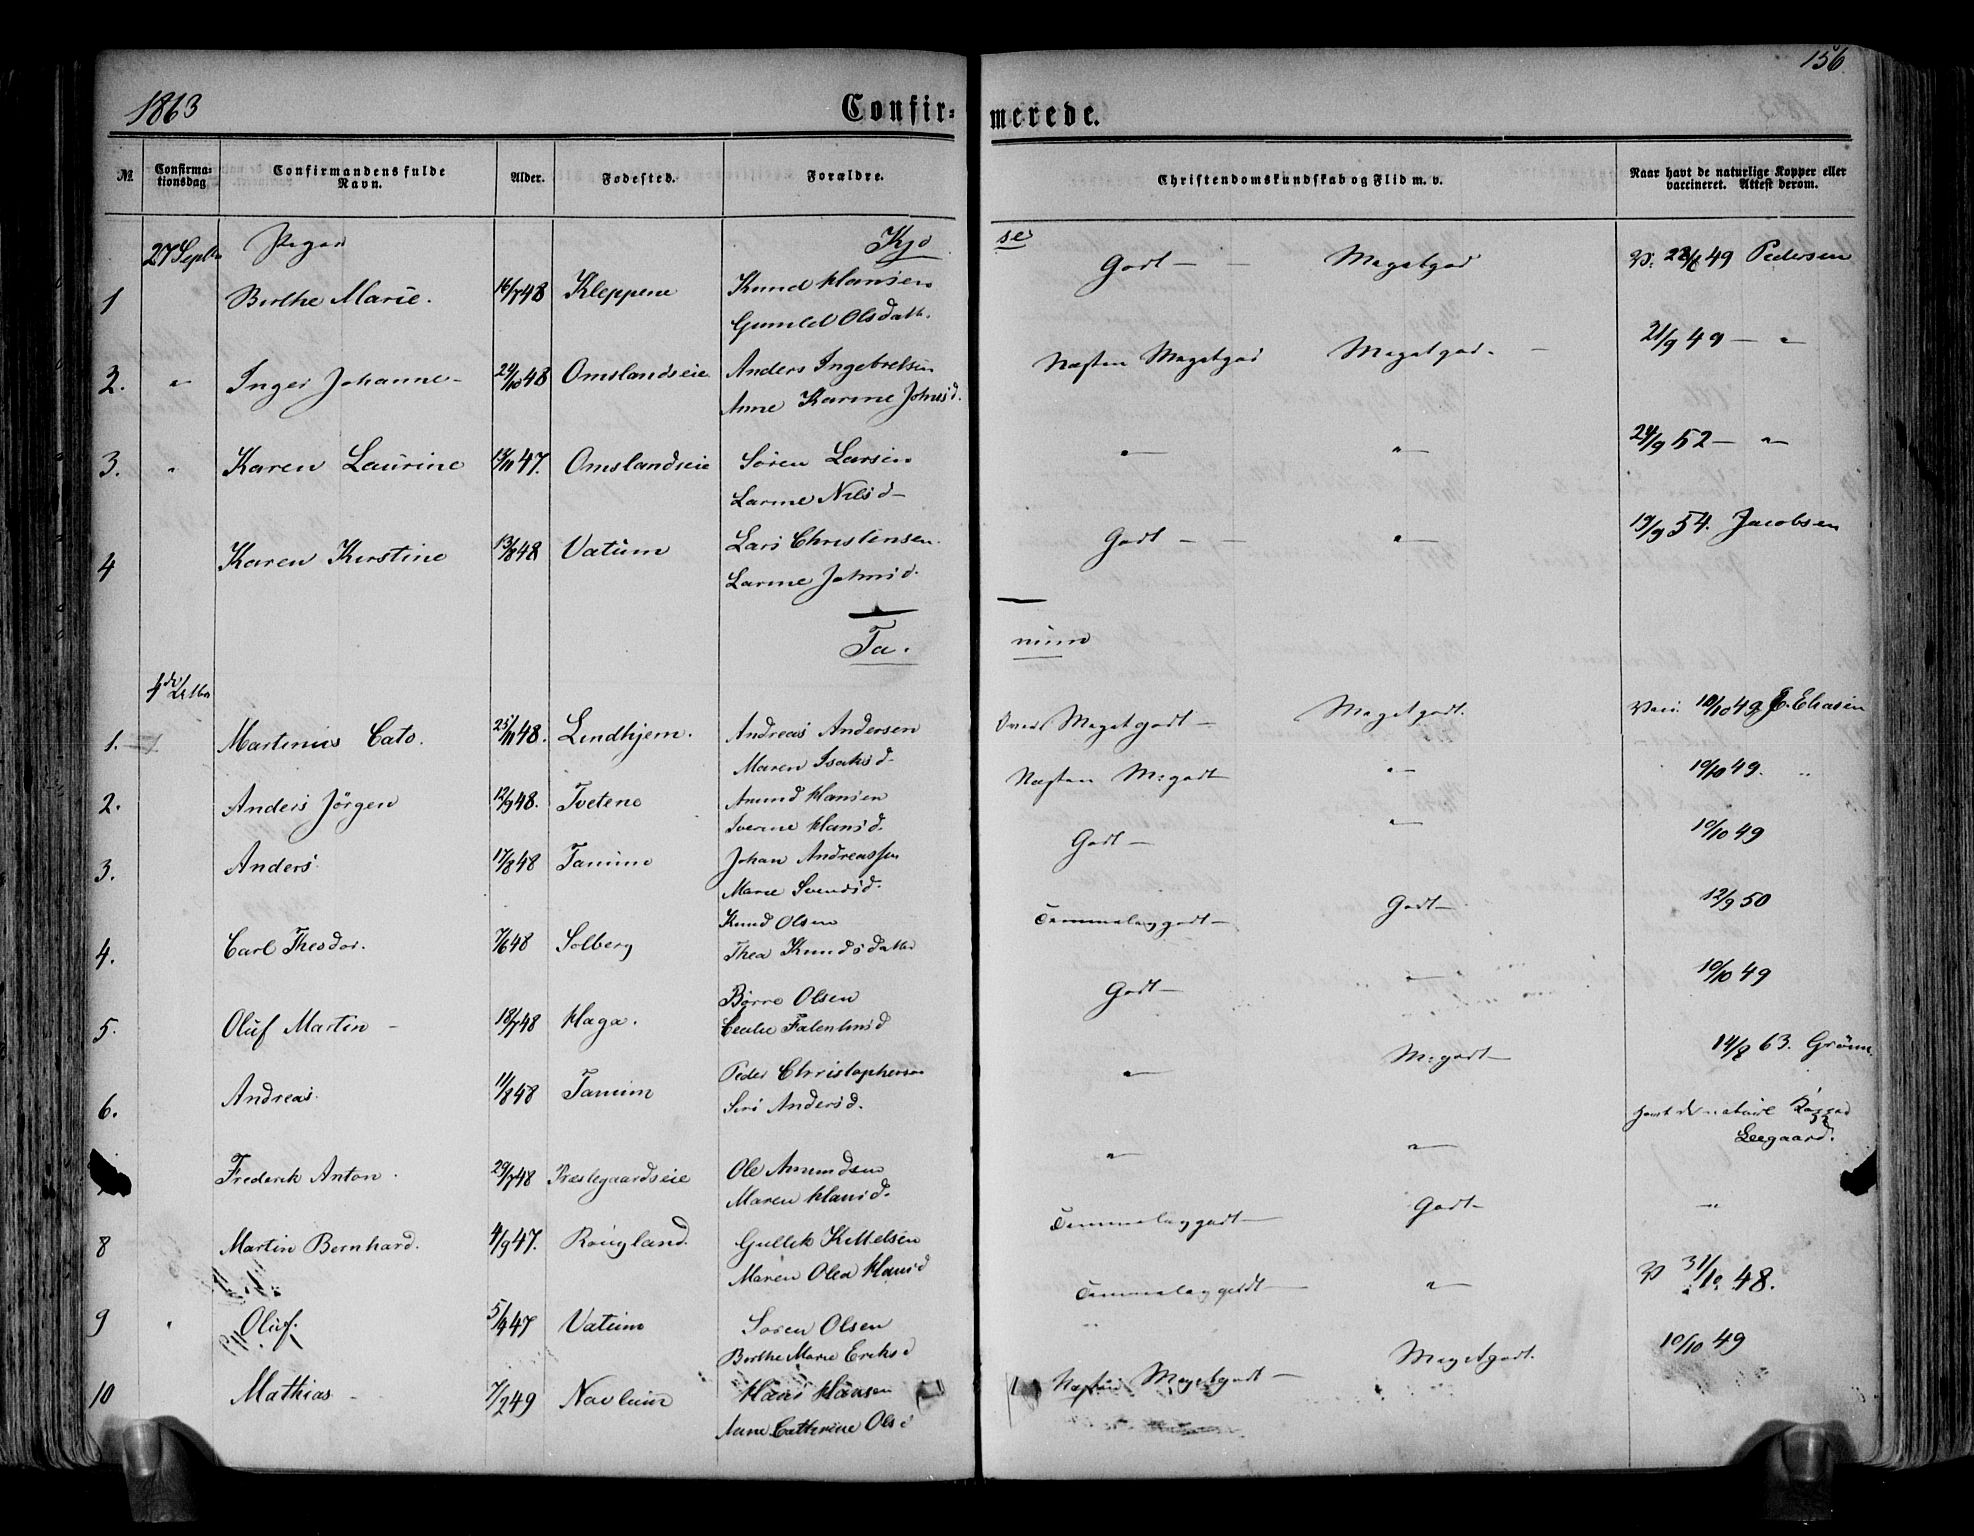 156
1863
Confir= merede.
№ Confirma-tionsdag Confirmandens fulde Navn. Alder. Fødested. Forældre. Christendomskundskab og Flid m. v. Naar havt de naturlige Kopper eller vaccineret. Attest derom.
27 Septbr Piger Kjø se
1 Berthe Marie. 16/7 48 Kleppene Knud Hansen Godt — Megetgod V: 22/6 49 Pedersen
Gunild Olsdatt.
2. " Inger Johanne 29/10 48 Omslandseie Anders Ingebretsen Næsten Megetgod Megetgod. — 21/9 49 — "
Anne Karine Johnsd.
3. " Karen Laurine 13/11 47. Omslandseie Søren Larsen " " 24/9 52 — "
Larine Nilsd
4 Karen Kirstine 13/8 48 Vatum Lars Christensen. Godt — " 19/9 54. Jacobsen
Larine Johnsd.
Ta. num
4de Octbr
1. Martinius Cato. 25/11 48. Lindhjem. Andreas Andersen Megetgodt — Megetgodt. Vaci. 10/10 49 E. Eliasen
Maren Isaksd.
2. Anders Jörgen 12/9 48. Tvetene Amund Hansen Næsten M:godt " 10/10 49. "
Hansd.
3. Anders 17/8 48 Tanum Johan Andreassen Godt — " 10/10 49
Marie Svendsd.
4. Carl Theodor. 7/6 48 Solberg Knud Olsen Temmelaggodt — Godt 12/9 50
Thea Knudsdatter
5. Oluf Martin 18/7 48 Haga. Børre Olsen Godt — " 10/10 49
Falentinsd
6. Andreas 11/8 48 Tanum Peder Christophersen " M:godt 14/8 63. Grønn
Siri Andersd.
Frederik Anton. 29/7 48 Præstegaardseie Ole Amundsen " " havt de naturl Kopper
Leegaard.
Maren Hansd.
8 Martin Bernhard. 4/9 47. Rougland Gullik Kittelsen Temmelaggodt — Godt "
Maren Olea Hansd
9 " Oluf. 5/9 47 Vatum Søren Olsen Temmelaggodt — " V 31/10 48.
Berthe Marie Eriksd
10 Mathias 7/2 49 Navlum Hans Hansen Næsten Megetgodt — Megetgodt. 10/10 49
Anne Cathrine Olsd